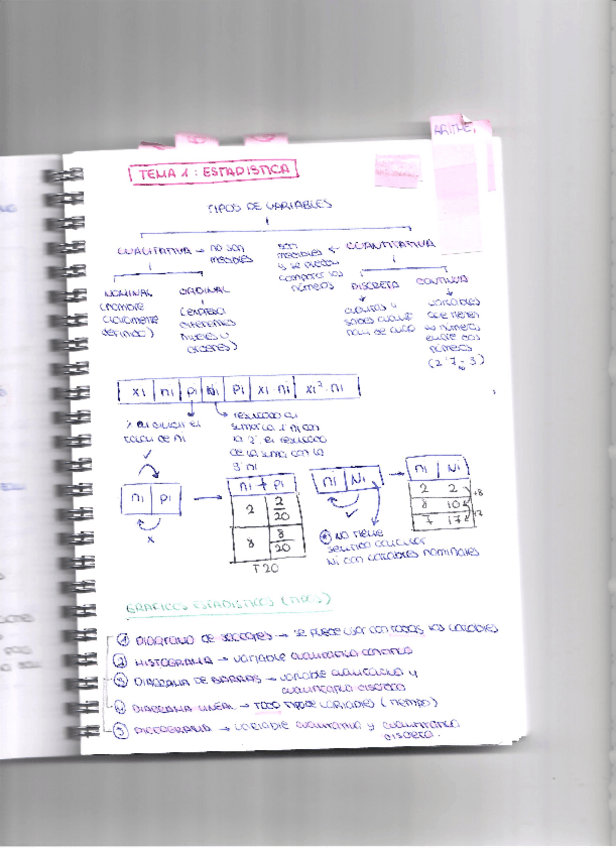 ARITME.
TEMA 1: ESTADISTICA
TIPOS DE VARIABLES
CUALITATIVA → no son medibles
son medibles y se pueden comparar los números ← CUANTITATIVA
NOMINAL
(nombre claramente definido)
ORDINAL
(expresa diferentes niveles u ordenes)
DISCRETA
CONTINUA
variables que tienen un número entre dos números
(2'7-3)
xi | ni | pi | Ni | Pi | xi·ni | xi²·ni
resultado de sumar la 1ª ni con la 2ª, el resultado de la suma con la 3ª ni
ni | pi
x
ni | pi
2 | 2/20
8 | 8/20
T 20
ni | Ni
ni | Ni
2 | 2
8 | 10
7 | 17
+8
NO TIENE
SENTIDO CALCULAR
Ni CON VARIABLES NOMINALES
GRÁFICOS ESTADISTICOS (TIPOS)
① DIAGRAMA DE SECTORES → SE PUEDE USAR CON TODAS LAS VARIABLES
② HISTOGRAMA → VARIABLE CUANTITATIVA CONTINUA
③ DIAGRAMA DE BARRAS → VARIABLE CUALITATIVA Y
CUANTITATIVA DISCRETA
④ DIAGRAMA LINEAL → TODO TIPO DE VARIABLES (TIEMPO)
⑤ PICTOGRAMA → VARIABLE CUALITATIVA Y CUANTITATIVA
DISCRETA.